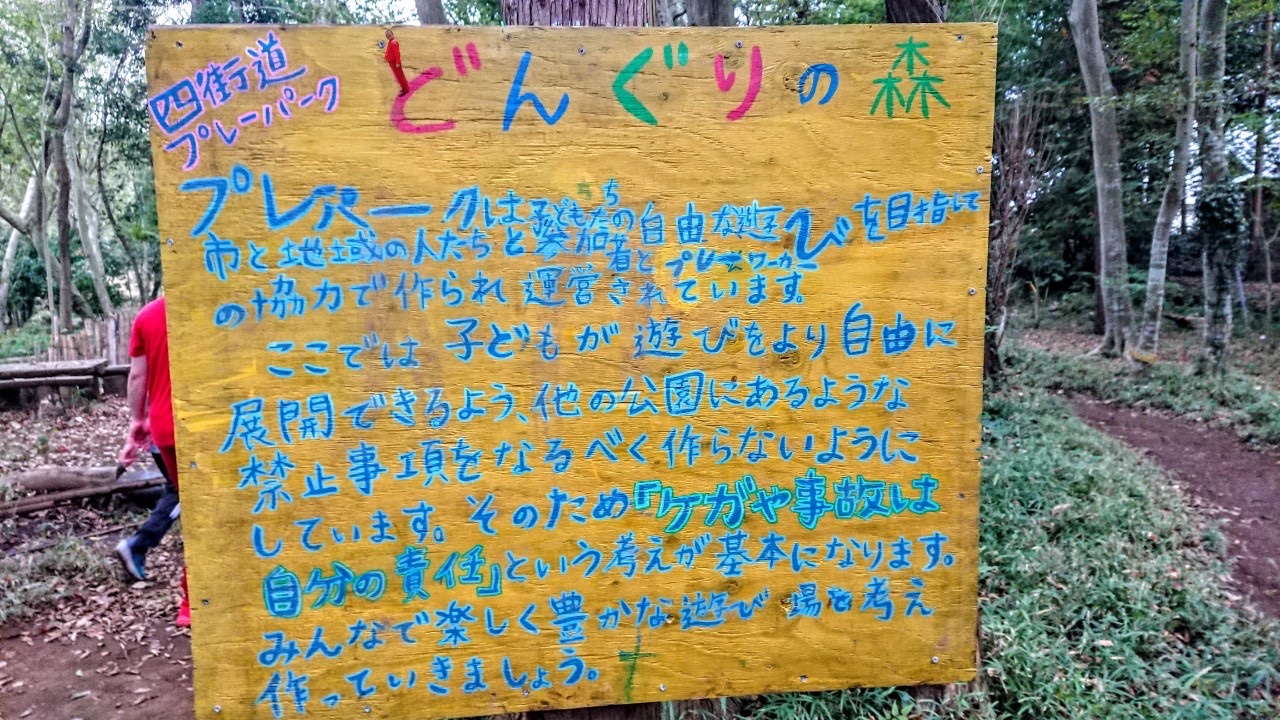 四街道
プレーパーク
どんぐりの森
プレーパークは子どもたちの自由な遊びを目指して
市と地域の人たちと参加者とプレーワーカー
の協力で作られ運営されています。
ここでは子どもが遊びをより自由に
展開できるよう、他の公園にあるような
禁止事項をなるべく作らないように
しています。そのため『ケガや事故は
自分の責任』という考えが基本になります。
みんなで楽しく豊かな遊び場を考え
作っていきましょう。